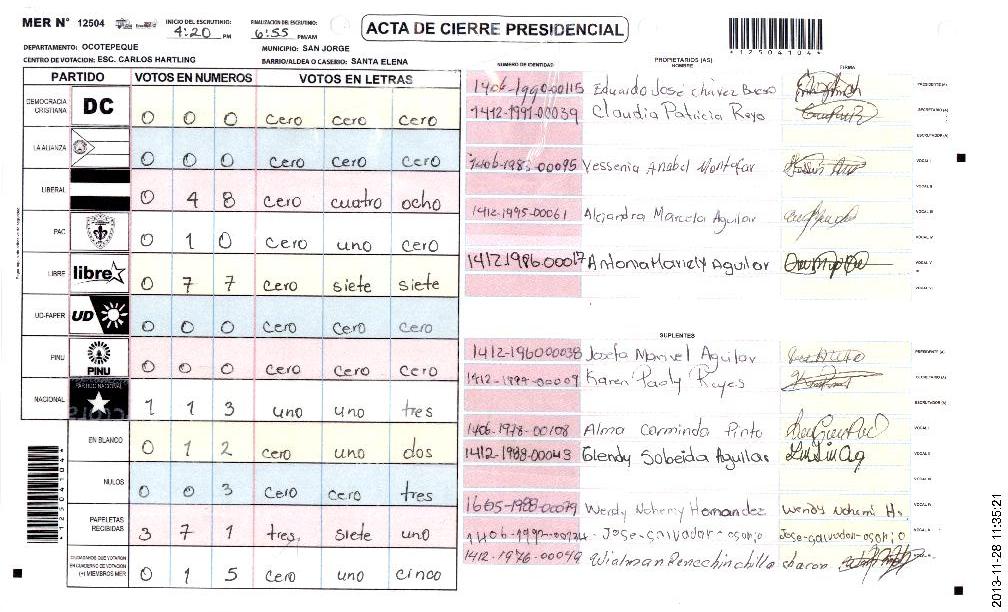 MER N° 12504
INICIO DEL ESCRUTINIO: 4:20 PM
FINALIZACION DEL ESCRUTINIO: 6:55 PM/AM
ACTA DE CIERRE PRESIDENCIAL
*12504104*
DEPARTAMENTO: OCOTEPEQUE
MUNICIPIO: SAN JORGE
CENTRO DE VOTACION: ESC. CARLOS HARTLING
BARRIO/ALDEA O CASERIO: SANTA ELENA
PARTIDO VOTOS EN NUMEROS VOTOS EN LETRAS
DEMOCRACIA CRISTIANA DC 0 0 0 cero cero cero
LA ALIANZA 0 0 0 cero cero cero
LIBERAL 0 4 8 cero cuatro ocho
PAC 0 1 0 cero uno cero
LIBRE libre 0 7 7 cero siete siete
UD-FAPER UD 0 0 0 cero cero cero
PINU PINU 0 0 0 cero cero cero
NACIONAL PARTIDO NACIONAL 1 1 3 uno uno tres
EN BLANCO 0 1 2 cero uno dos
NULOS 0 0 3 cero cero tres
PAPELETAS RECIBIDAS 3 7 1 tres siete uno
CIUDADANOS QUE VOTARON EN CUADERNO DE VOTACION (+) MIEMBROS MER 0 1 5 cero uno cinco
*12504104*
NUMERO DE IDENTIDAD PROPIETARIOS (AS) NOMBRE FIRMA
1406-1990-00115 Eduardo José chavez Bueso PRESIDENTE (A)
1412-1991-00039 Claudia Patricia Reyo SECRETARIO (A)
ESCRUTADOR (A)
1406-1983-00095 Yessenia Anabel Montofar VOCAL I
VOCAL II
1412-1995-00061 Alejandra Marcela Aguilar VOCAL III
VOCAL IV
1412-1986-00017 Antonia Mariely Aguilar VOCAL V
VOCAL VI
SUPLENTES
1412-1960-00038 Josefa Marivel Aguilar PRESIDENTE (A)
Karen Paoly Reyes SECRETARIO (A)
ESCRUTADOR (A)
1406-1978-00108 Alma Corminda Pinto VOCAL I
1412-1988-00043 Glendy Sobeida Aguilar VOCAL II
1605-1988-00079 Wendy Nohemy Hernandez Wendy Nohemi H.
Jose-salvador-osorio Jose-salvador-osorio
1412-1976-00049
2013-11-28 11:35:21